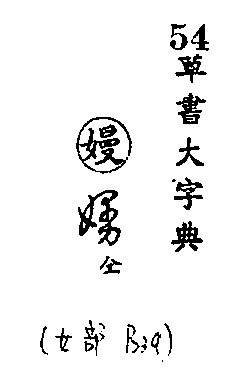 54
草書大字典
嫚
仝
(女部 B39)